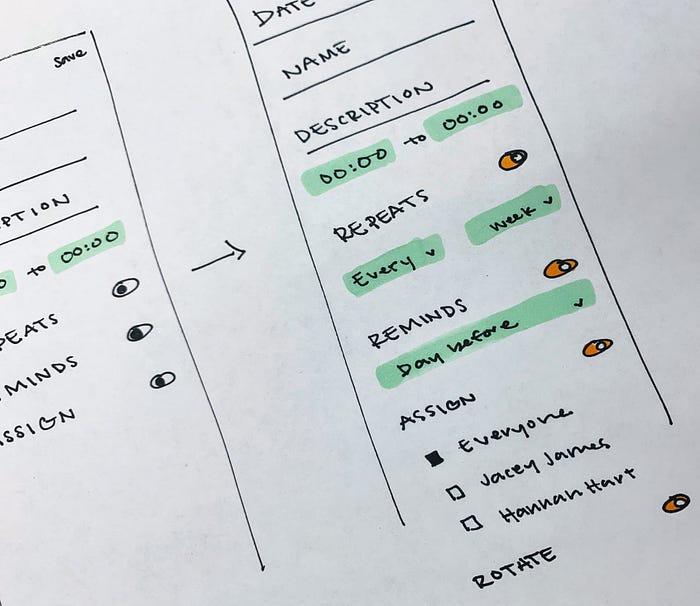 Save
PTION
to 00:00
PEATS
MINDS
SSIGN
DATE
NAME
DESCRIPTION
00:00 to 00:00
REPEATS
Every Week
REMINDS
Day before
ASSIGN
Everyone
Jacey James
Hannah Hart
ROTATE